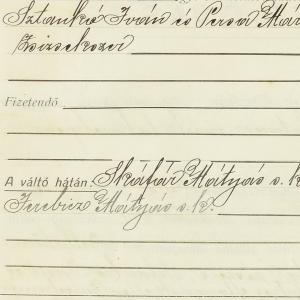 Sztankó Iván és Persa Már
Zsizsekszer
Fizetendő
A váltó hátán: Skáfár Mátyás s. k
Ferebicz Mátyás s. k.